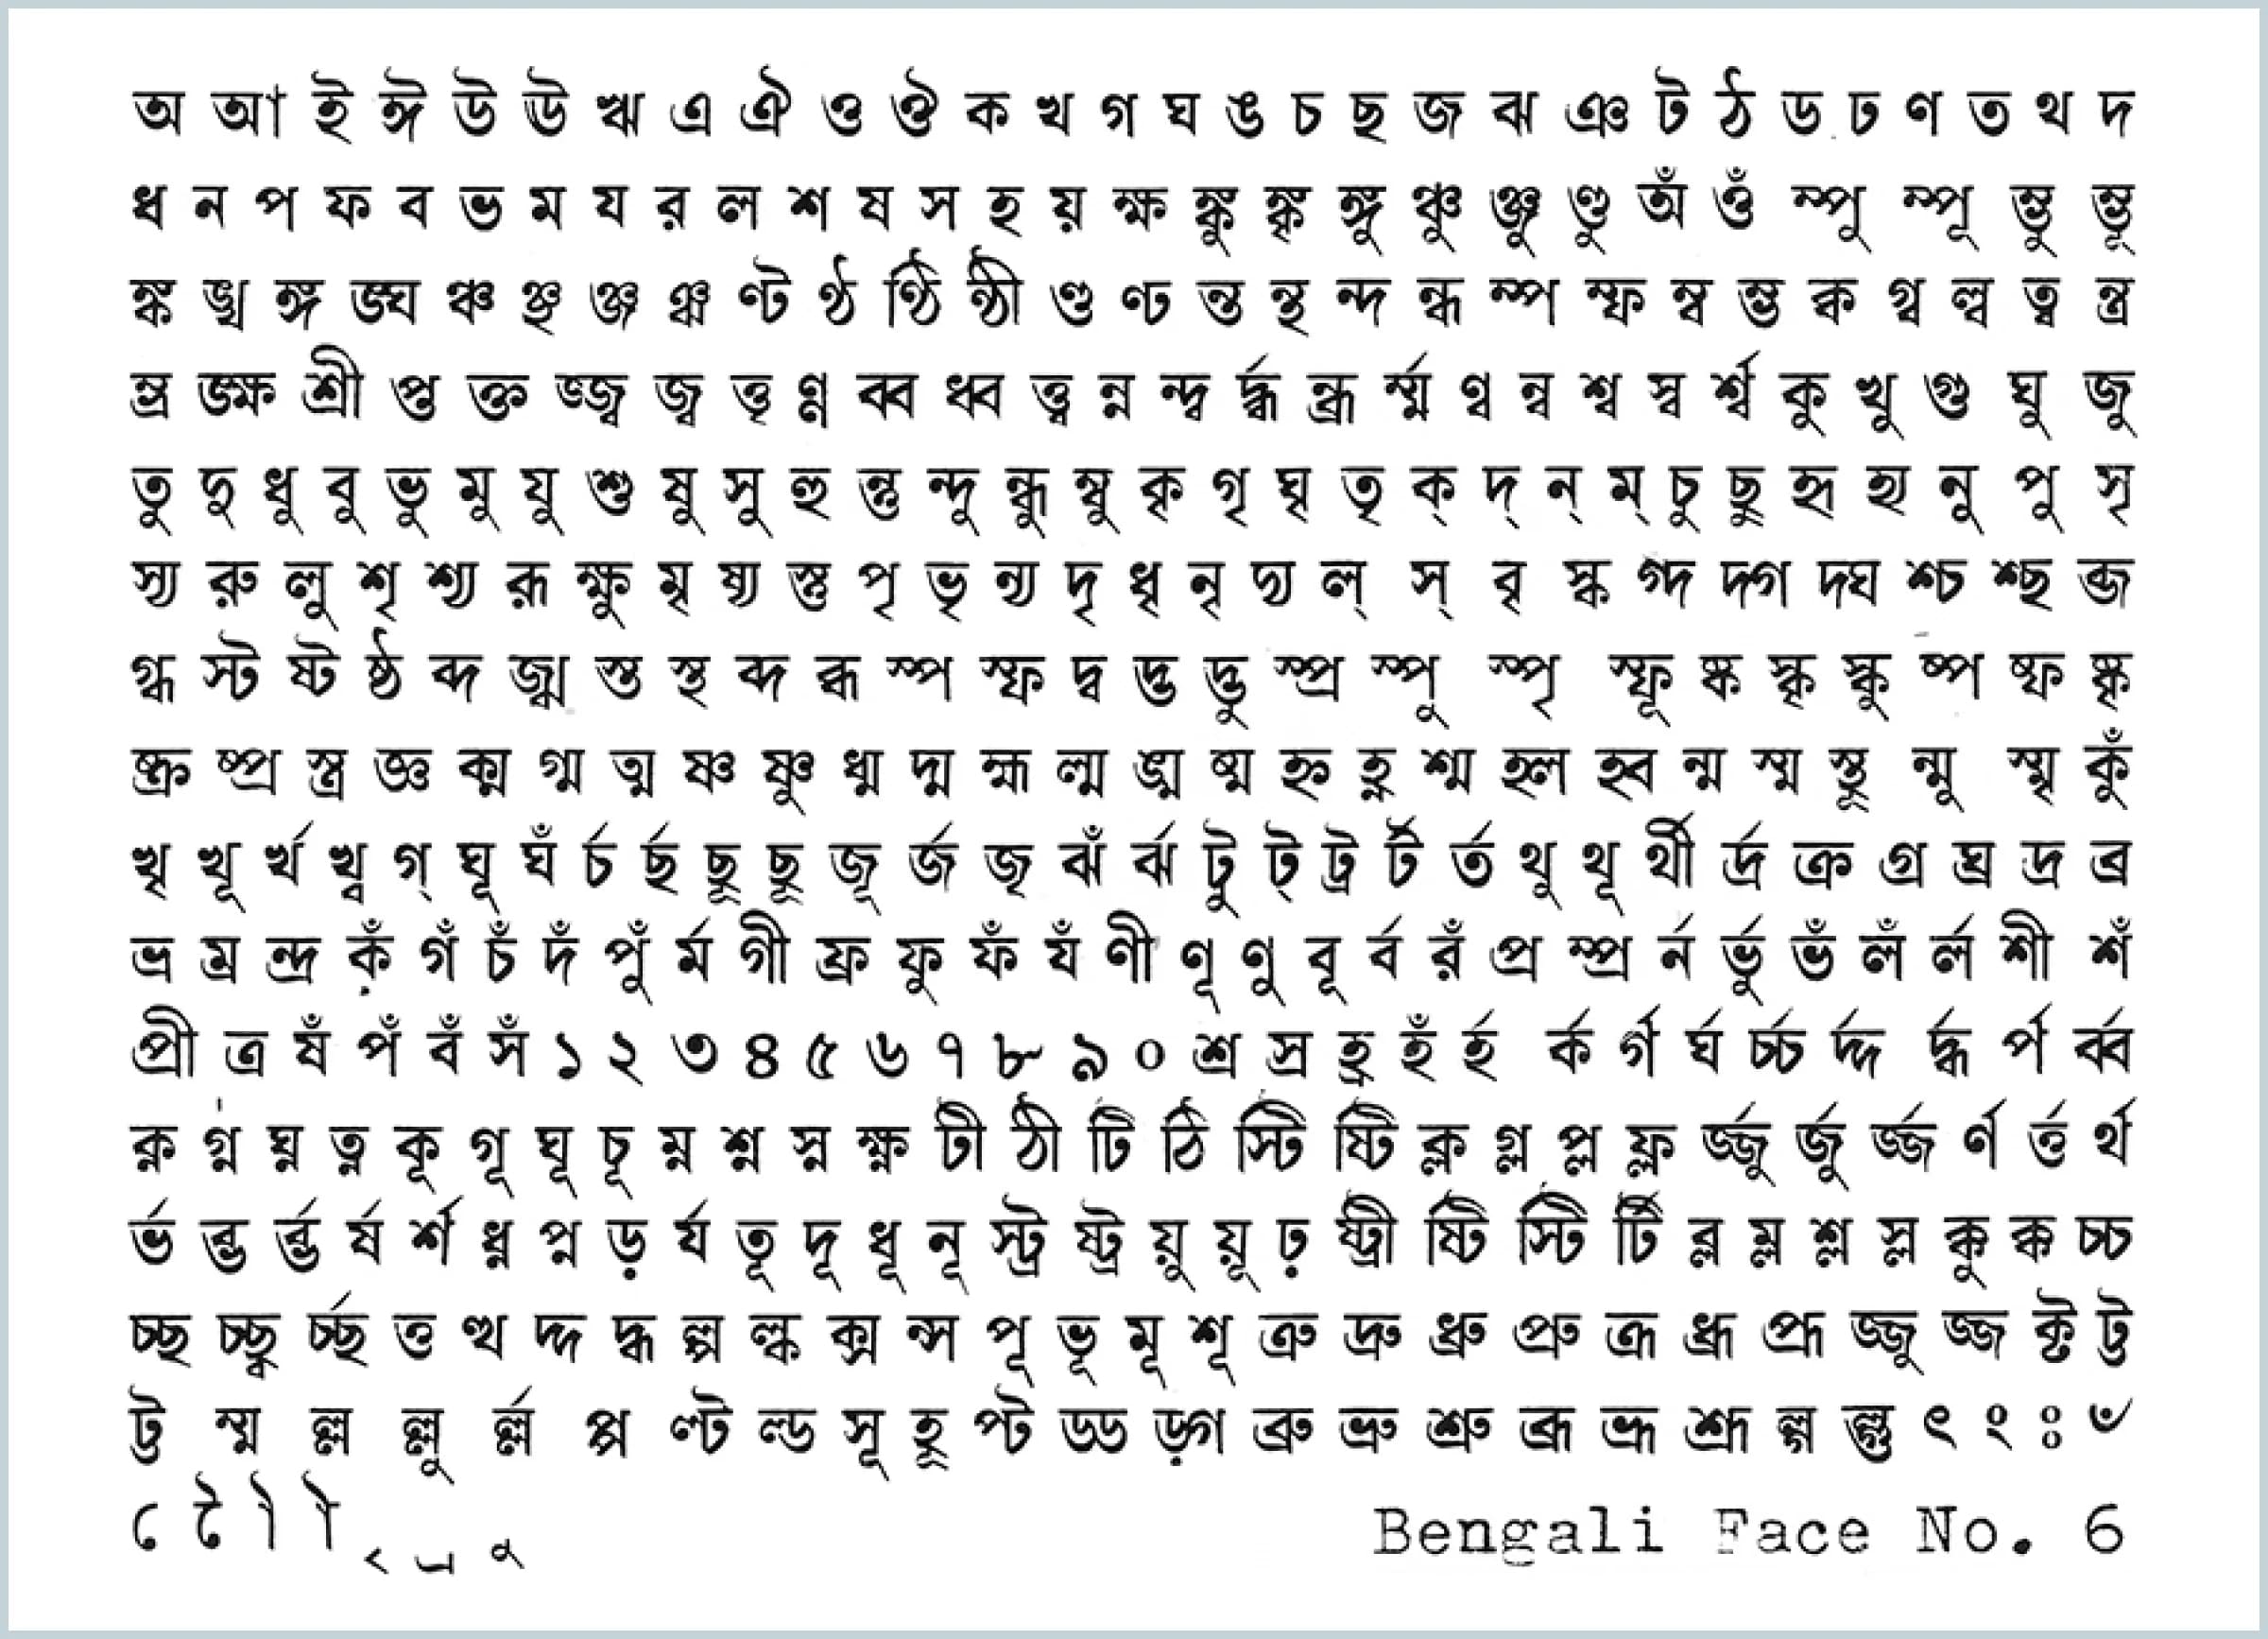 অ আ ই ঈ উ ঊ ঋ এ ঐ ও ঔ ক খ গ ঘ ঙ চ ছ জ ঝ ঞ ট ঠ ড ঢ ণ ত থ দ
ধ ন প ফ ব ভ ম য র ল শ ষ স হ য় ক্ষ ঙ্কু ঙ্কৃ ঙ্গু ঞ্চু ঞ্জু ণ্ডু অঁ ওঁ ম্পু ম্পূ ম্ভু ম্ভূ
ঙ্ক ঙ্খ ঙ্গ ঙ্ঘ ঞ্চ ঞ্ছ ঞ্জ ঞ্ঝ ণ্ট ণ্ঠ ণ্ঠি ণ্ঠী ণ্ড ণ্ঢ ন্ত ন্থ ন্দ ন্ধ ম্প ম্ফ ম্ব ম্ভ ক্ব গ্ব ল্ব ত্ব ন্ত্র
ম্ভ্র ঙ্ক্ষ শ্রী প্ত ক্ত জ্জ্ব জ্ব ত্তৃ ণ্ণ ব্ব ধ্ব ত্ত্ব ন্ন ন্দ্ব র্দ্ধ্ব ন্ধ্র র্ম্ম ণ্ব ন্ব শ্ব স্ব র্শ্ব কু খু গু ঘু জু
তু দু ধু বু ভু মু যু শু ষু সু হু ন্তু ন্দু ন্ধু ম্বু কৃ গৃ ঘৃ তৃ ক্ দ্ ন্ ম্ চু ছু হৃ হ্য নু পু সৃ
স্য রু লু শৃ শ্য রূ ক্ষু মৃ ষ্য স্তু পৃ ভৃ ন্য দৃ ধৃ নৃ দ্য ল্ স্ বৃ স্ক গ্দ দ্গ দ্ঘ শ্চ শ্ছ ব্জ
গ্ধ স্ট ষ্ট ষ্ঠ ব্দ জ্ঝ স্ত স্থ ব্দ ব্ধ স্প স্ফ দ্ব দ্ভ দ্ভু স্প্র স্পু স্পৃ স্ফূ ষ্ক স্কৃ স্কু ষ্প ষ্ফ ষ্কৃ
ষ্ক্র ষ্প্র স্ত্র জ্ঞ ক্ম গ্ম ত্ম ষ্ণ ষ্ণু ধ্ম দ্ম হ্ম ল্ম ঙ্ম ষ্ম হ্ন হ্ণ শ্ম হ্ল হ্ব ন্ম স্ম স্থূ ন্মু স্মৃ কুঁ
খৃ খূ র্খ খ্ব গ্ ঘূ ঘঁ র্চ র্ছ ছূ ছূ জূ র্জ জৃ ঝঁ র্ঝ টু ট্ ট্র র্ট র্ত থু থূ র্থী র্দ্র ক্র গ্র ঘ্র দ্র ব্র
ভ্র ম্র ন্দ্র কঁ গঁ চঁ দঁ পুঁ র্ম গী ফ্র ফু ফঁ যঁ ণী ণূ ণু বূ র্ব রঁ প্র ম্প্র র্ন র্ভু ভঁ লঁ র্ল শী শঁ
প্রী ত্র ষঁ পঁ বঁ সঁ ১ ২ ৩ ৪ ৫ ৬ ৭ ৮ ৯ ০ শ্র স্র হ্র হঁ র্হ র্ক র্গ র্ঘ র্চ্চ র্দ্দ র্দ্ধ র্প র্ব্ব
ক্ন গ্ন ঘ্ন ত্ন কূ গূ ঘূ চূ ম্ন শ্ন স্ন ক্ষ্ণ টী ঠী টি ঠি স্টি ষ্টি ক্ল গ্ল প্ল ফ্ল র্জ্জু র্জু র্জ্জ র্ণ র্ত্ত র্থ
র্ভ ব্ভ র্ব্ভ র্ষ র্শ ধ্ন প্ন ড় র্য তূ দূ ধূ নূ স্ট্র ষ্ট্র য়ু য়ূ ঢ় ষ্ট্রী ষ্টি স্টি র্টি ব্ল ম্ল শ্ল স্ল ক্কু ক্ক চ্চ
চ্ছ চ্ছু র্চ্ছ ত্ত ত্থ দ্দ দ্ধ ল্প ল্ক ক্স ন্স পূ ভূ মূ শূ ত্রু দ্রু ধ্রু প্রু ত্রূ ধ্রূ প্রূ জ্জু জ্জ ক্ট ট্ট
ট্ট ম্ম ল্ল ল্লু র্ল্ল প্প ল্ট ল্ড সূ হূ প্ট ড্ড ড়্গ ব্রু ভ্রু শ্রু ব্রূ ভ্রূ শ্রূ ল্গ ল্গু ৎ ং ঃ ঁ
ে ৈ ৗ ী ৃ ্র ু Bengali Face No. 6